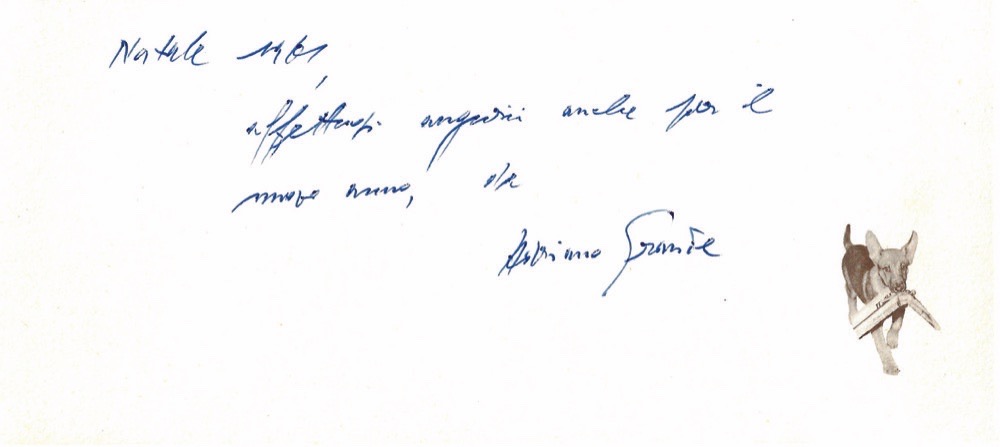 Natale 1961,
affettuosi auguri anche per il
nuovo anno, da
Adriano Grande